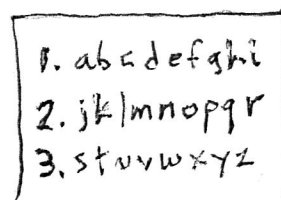 1. abcdefghi
2. jklmnopqr
3. stuvwxyz